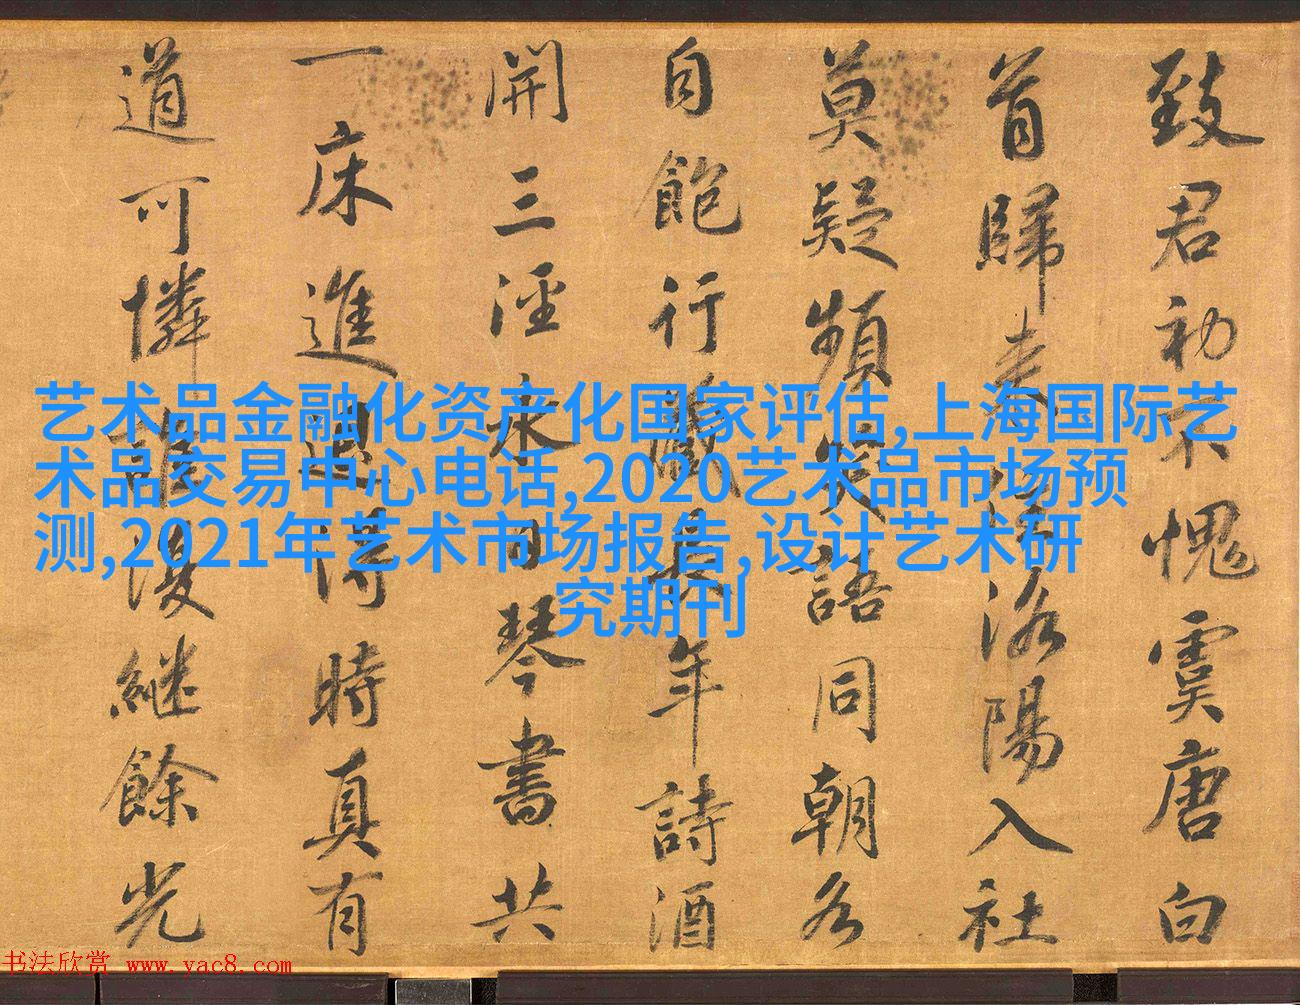 致君初不愧虞唐白
首歸来洛陽入社
莫疑頻笑語同朝各
自飽行藏長年詩酒
開三涇永日琴書共
一床進退得時真有
道可憐誰復繼餘光
艺术品金融化资产化国家评估,上海国际艺
术品交易中心电话,2020艺术品市场预
测,2021年艺术市场报告,设计艺术研
究期刊
书法欣赏 www.yac8.com